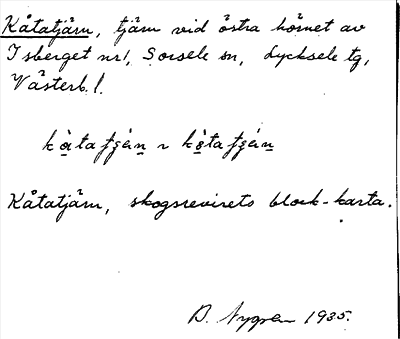 Kåtatjärn, tjärn vid östra hörnet av
Isberget nr 1, Sorsele sn, Lycksele tg,
Västerb. l.
Kåtatjärn, skogsrevirets block-karta.
B. Nygren 1935.